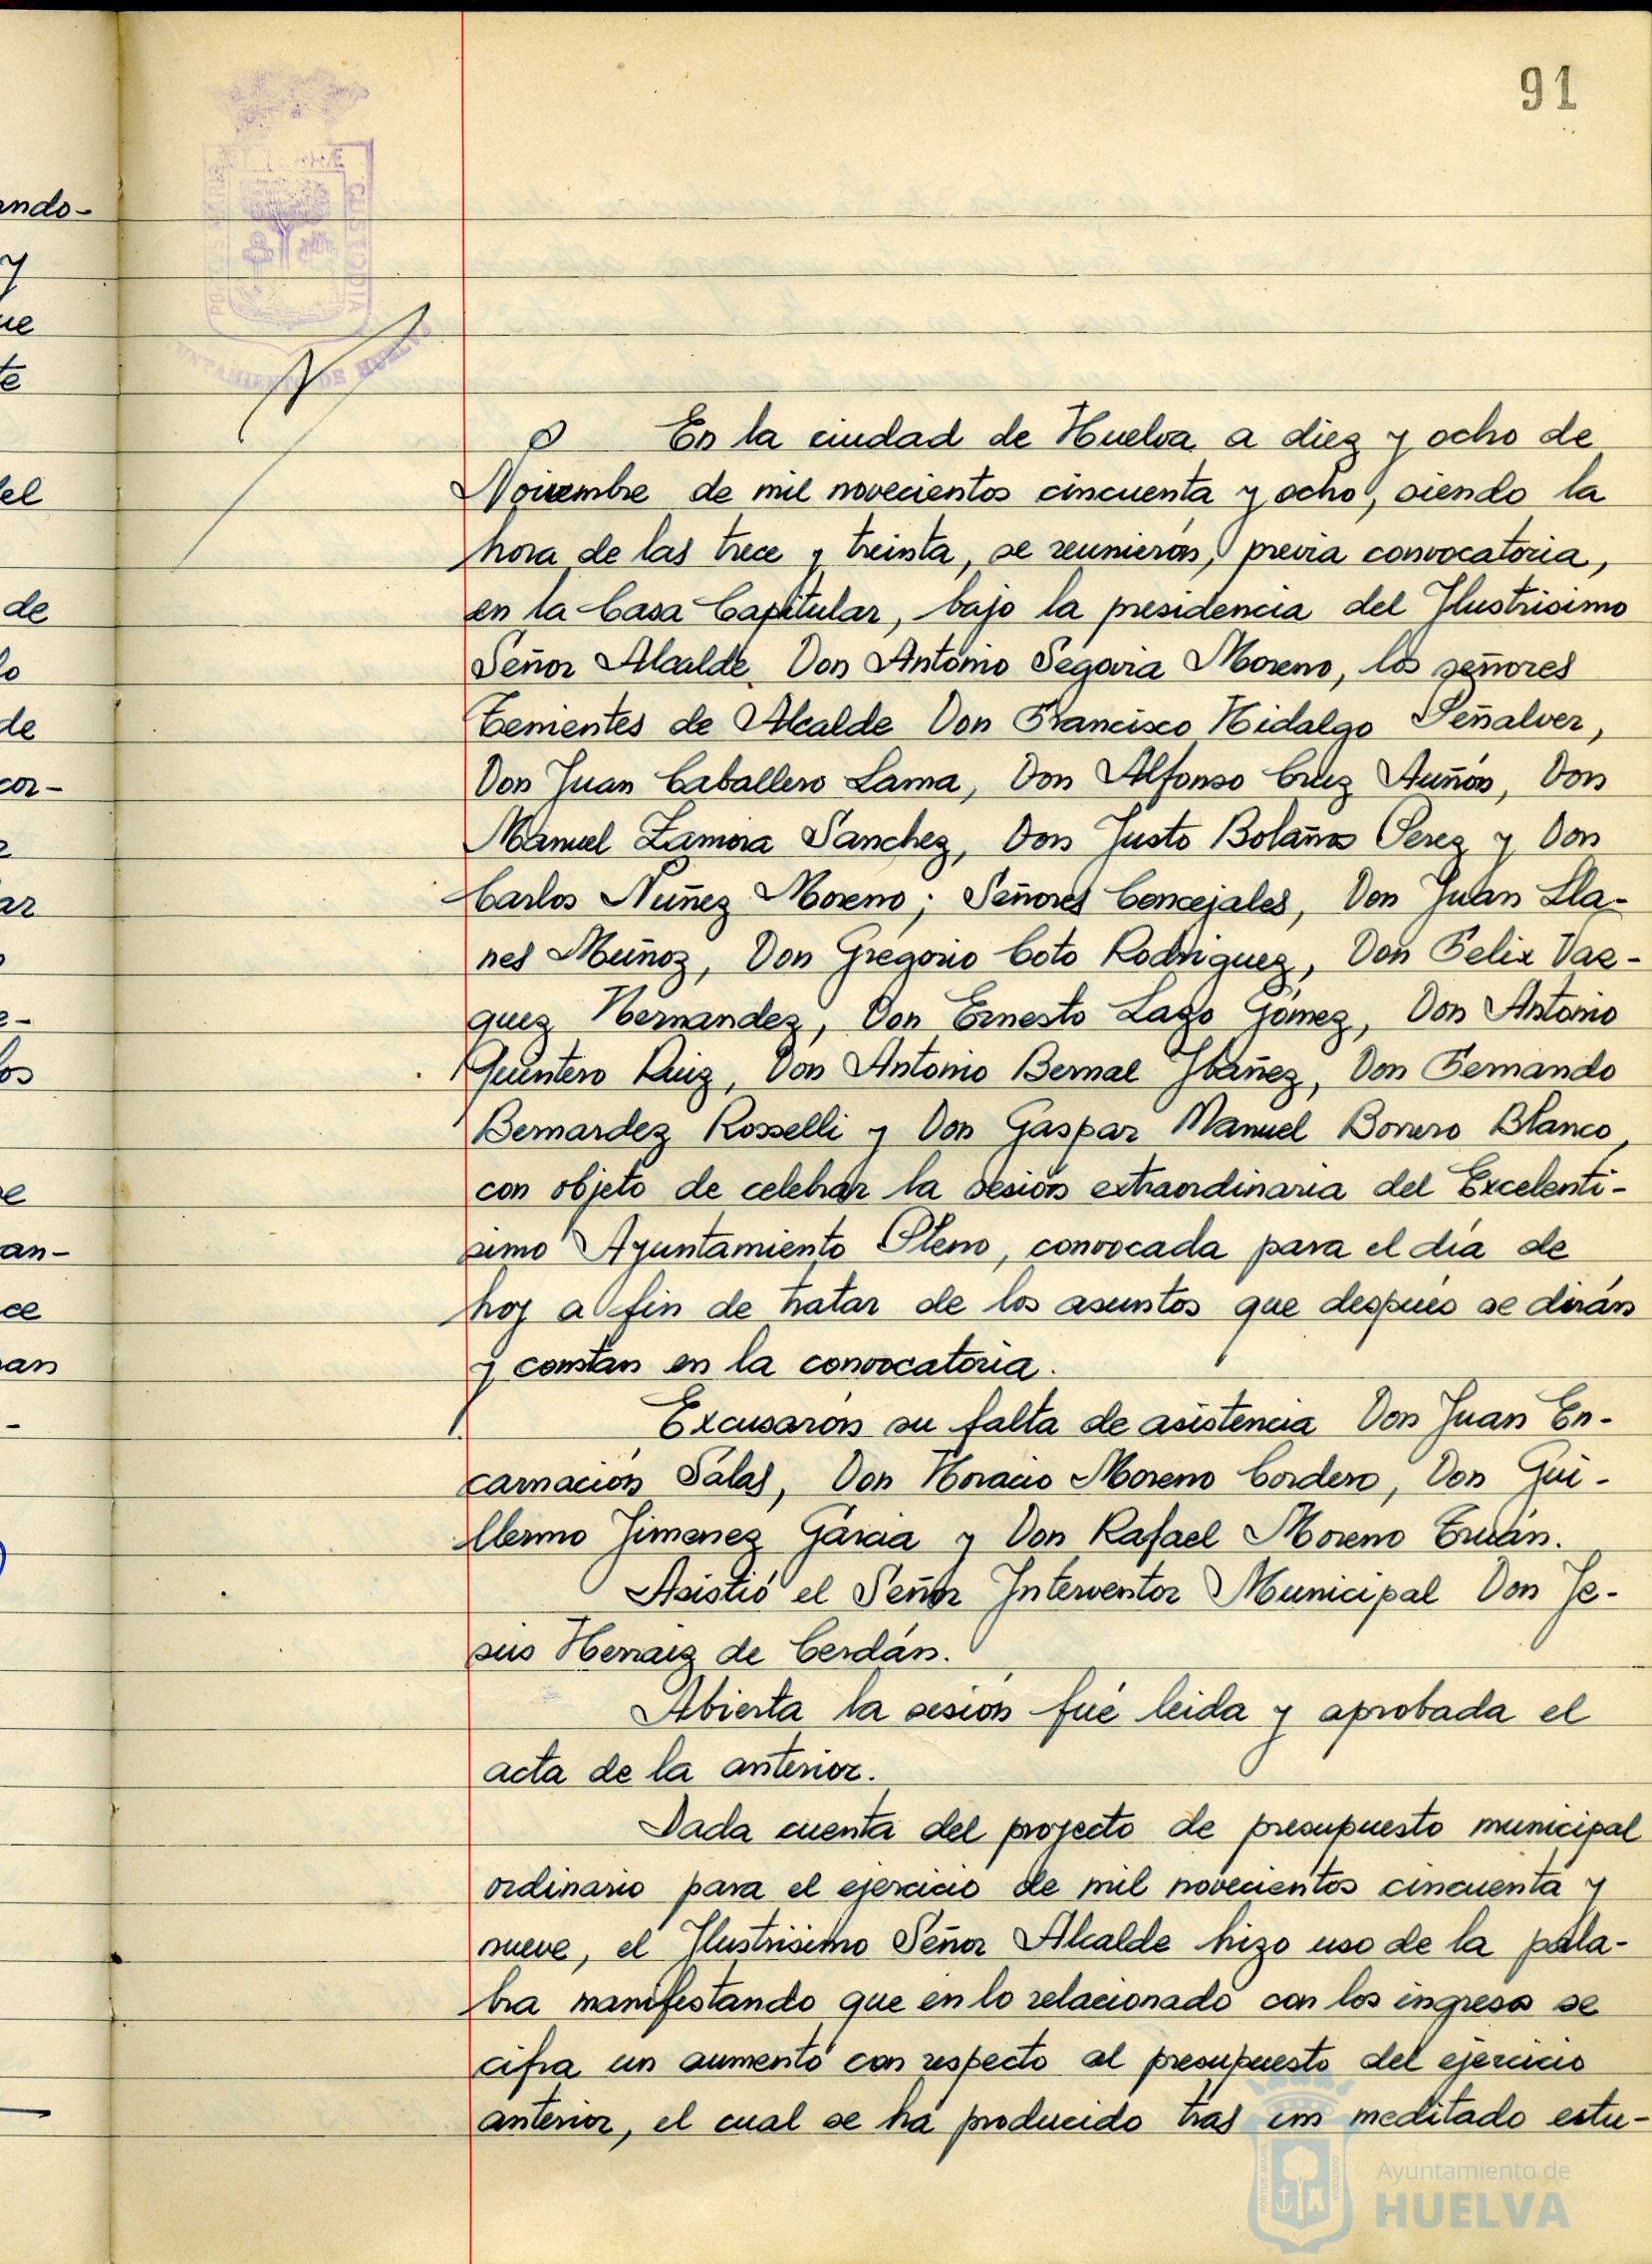 91
ando-
y
ue
te
el
de
lo
de
cor-
ar
e-
los
e
an-
ce
an
-
CUSTODIA
UNTAMIENTO DE HUELVA
En la ciudad de Huelva a diez y ocho de
Noviembre de mil novecientos cincuenta y ocho, siendo la
hora de las trece y treinta, se reunierón, previa convocatoria,
en la Casa Capitular, bajo la presidencia del Ilustrisimo
Señor Alcalde Don Antonio Segovia Moreno, los señores
Tenientes de Alcalde Don Francisco Hidalgo Peñalver,
Don Juan Caballero Lama, Don Alfonso Cruz Auñón, Don
Manuel Zamora Sanchez, Don Justo Bolaños Perez y Don
Carlos Nuñez Moreno; Señores Concejales, Don Juan Lla-
nes Muñoz, Don Gregorio Coto Rodriguez, Don Felix Vaz-
quez Hernandez, Don Ernesto Lazo Gómez, Don Antonio
Quintero Ruiz, Don Antonio Bernal Ybañez, Don Fernando
Bernardez Rosselli y Don Gaspar Manuel Borrero Blanco,
con objeto de celebrar la sesión extraordinaria del Excelenti-
simo Ayuntamiento Pleno, convocada para el día de
hoy a fin de tratar de los asuntos que después se dirán
y constan en la convocatoria.
Excusarón su falta de asistencia Don Juan En-
carnación Salas, Don Horacio Moreno Cordero, Don Gui-
llermo Jimenez Garcia y Don Rafael Moreno
Asistió el Señor Interventor Municipal Don Je-
sus Herraiz de Cerdán.
Abierta la sesión fué leida y aprobada el
acta de la anterior.
Dada cuenta del proyecto de presupuesto municipal
ordinario para el ejercicio de mil novecientos cincuenta y
nueve, el Ilustrisimo Señor Alcalde hizo uso de la pala-
bra manifestando que en lo relacionado con los ingresos se
cifra un aumento con respecto al presupuesto del ejercicio
anterior, el cual se ha producido tras un meditado estu-
Ayuntamiento de
HUELVA